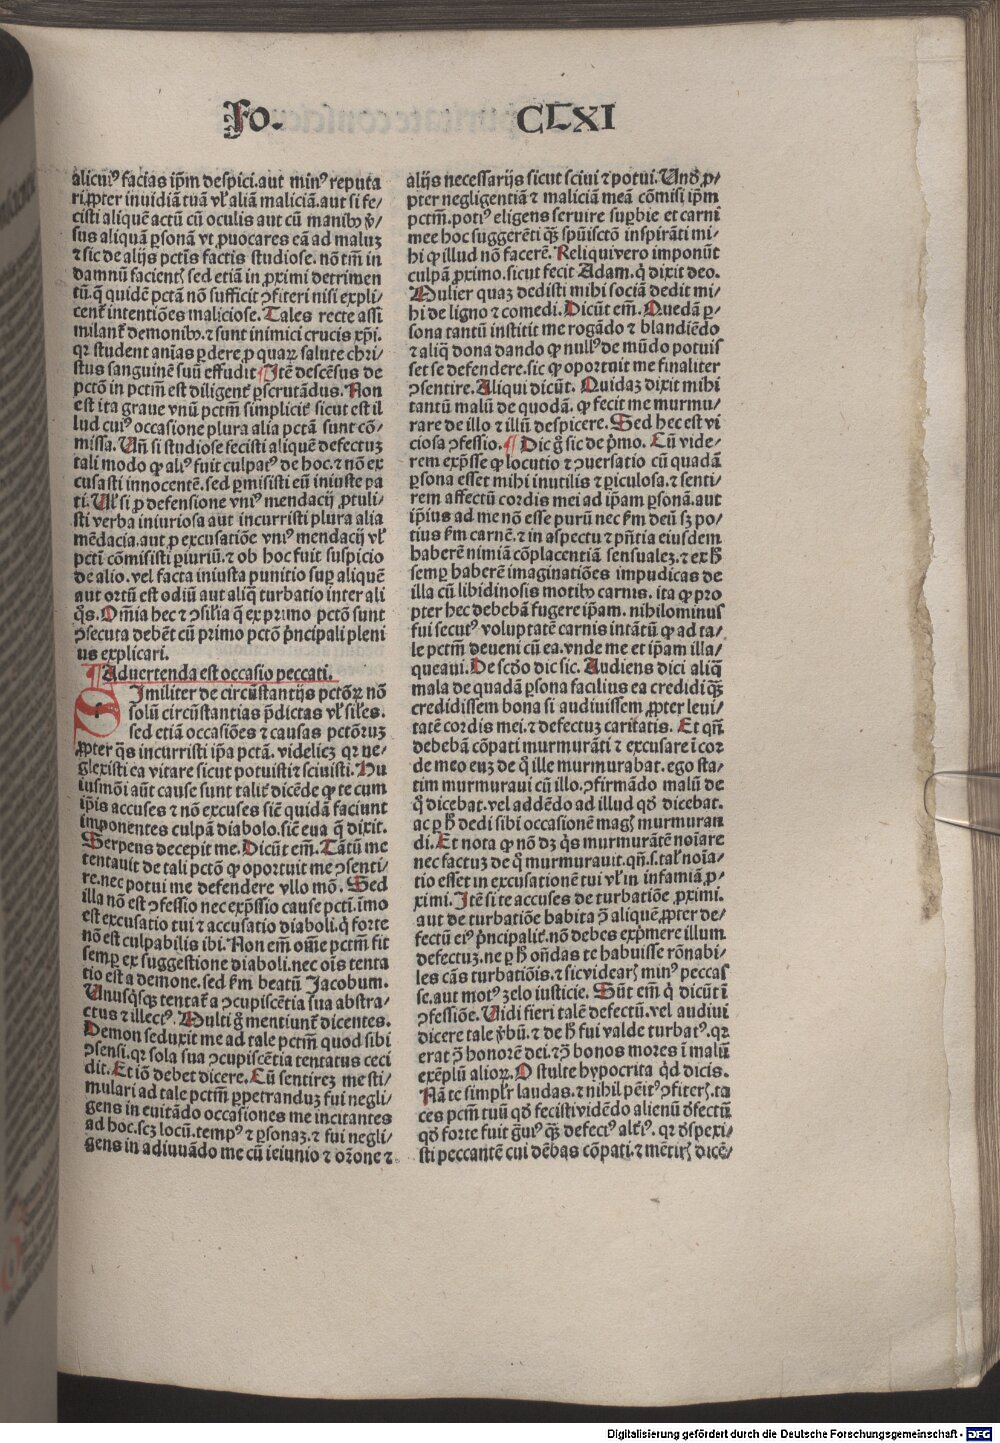 Fo. CLXI
alicuiꝰ facias ip̄m despici.aut minꝰ reputa
ri ꝓpter inuidiā tuā vl̓ aliā maliciā.aut si fe/
cisti aliquē actū cū oculis aut cū manibꝰ ṽ/
sus aliquā ꝑsonā vt ꝓuocares eā ad maluꝫ
⁊ sic de alijs pctīs factis studiose.nō tm̄ in
damnū faciem̄t sed etiā in ꝓximi detrimen
tū.q̄ quidē pctā nō sufficit ꝯfiteri nisi expli/
cent̄ intentiōes maliciose. Tales recte assi
milant̄ demonibꝰ.⁊ sunt inimici crucis xp̄i.
qꝛ student anīas ꝑdere ꝓ quaꝝ salute chri/
stus sanguinē suū effudit ¶Itē descēsus de
pctō in pctm̄ est diligent̄ ꝑscrutādus. Non
est ita graue vnū pctm̄ simplicit̄ sicut est il
lud cuiꝰ occasione plura alia pctā sunt cō/
missa. Vn̄ si studiose fecisti aliquē defectuꝫ
tali modo ꝙ aliꝰ fuit culpatꝰ de hoc.⁊ nō ex
cusasti innocentē.sed ꝑmisisti eū iniuste pa
ti. Vl̓ si ꝓ defensione vniꝰ mendacij ꝓtuli/
sti verba iniuriosa aut incurristi plura alia
mēdacia.aut ꝓ excusatiōe vniꝰ mendacij vl̓
pctī cōmisisti ꝑiuriū.⁊ ob hoc fuit suspicio
de alio.vel facta iniusta punitio suꝑ aliquē
aut ortū est odiū aut aliq̄ turbatio inter ali
q̄s. Om̄ia hec ⁊ ꝯsilīa q̄ ex primo pctō sunt
ꝯsecuta debēt cū primo pctō p̄ncipali pleni
us explicari.
¶Aduertenda est occasio peccati.
SImiliter de circūstantijs pctōꝝ nō
solū circūstantias p̄dictas vl̓ siłes.
sed etiā occasiōes ⁊ causas pctōruꝫ
ꝓpter q̄s incurristi ip̄a pctā.videlicꝫ qꝛ ne/
glexisti ea vitare sicut potuisti ⁊ sciuisti. Hu
iusmōi aūt cause sunt talit̄ dicēde ꝙ te cum
ip̄is accuses ⁊ nō excuses sic̄ quidā faciunt
imponentes culpā diabolo.sic̄ eua q̄ dixit.
Serpens decepit me. Dicūt em̄. Tātū me
tentauit de tali pctō ꝙ oportuit me ꝯsenti/
re.nec potui me defendere vllo mō. Sed
illa nō est ꝯfessio nec exp̄ssio cause pctī.īmo
est excusatio tui ⁊ accusatio diaboli.q̄ forte
nō est culpabilis ibi. Non em̄ om̄e pctm̄ fit
semꝑ ex suggestione diaboli.nec oīs tenta
tio est a demone.sed ẜm beatū Jacobum.
Vnusq̄sqꝫ tentat̄ a ꝯcupiscētia sua abstra/
ctus ⁊ illectꝰ. Multi g̊ mentiunt̄ dicentes.
Demon seduxit me ad tale pctm̄ quod sibi
ꝯsensi.qꝛ sola sua ꝯcupiscētia tentatus ceci
dit. Et iō debet dicere. Cū sentireꝫ me sti/
mulari ad tale pctm̄ ꝑpetranduꝫ fui negli/
gens in euitādo occasiones me incitantes
ad hoc.scꝫ locū.tempꝰ ⁊ ꝑsonaꝫ.⁊ fui negli/
gens in adiuuādo me cū ieiunio ⁊ or̄one ⁊
alijs necessarijs sicut sciui ⁊ potui. Vnd̄ ꝓ/
pter negligentiā ⁊ maliciā meā cōmisi ip̄m
pctm̄.potiꝰ eligens seruire suꝑbie et carni
mee hoc suggerēti qꝫ spūiscto inspirāti mi/
hi ꝙ illud nō facerē. Reliqui vero imponūt
culpā ꝓximo.sicut fecit Adam.q̄ dixit deo.
Mulier quaꝫ dedisti mihi sociā dedit mi/
hi de ligno ⁊ comedi. Dicūt em̄. Quedā ꝑ/
sona tantū institit me rogādo ⁊ blandiēdo
⁊ aliq̄ dona dando ꝙ nullꝰ de mūdo potuis
set se defendere.sic ꝙ oportuit me finaliter
ꝯsentire. Aliqui dicūt. Quidaꝫ dixit mihi
tantū malū de quodā. ꝙ fecit me murmu/
rare de illo ⁊ illū despicere. Sed hec est vi
ciosa ꝯfessio. ¶Dic g̊ sic de p̄mo. Cū vide/
rem exp̄sse ꝙ locutio ⁊ ꝯuersatio cū quadā
ꝑsona esset mihi inutilis ⁊ ꝑiculosa.⁊ senti/
rem affectū cordis mei ad ip̄am ꝑsonā.aut
ip̄ius ad me nō esse purū nec ẜm deū sꝫ po/
tius ẜm carnē.⁊ in aspectu ⁊ p̄ntia eiusdem
haberē nimiā cōplacentiā sensualeꝫ.⁊ ex h̄
semꝑ haberē imaginatiōes impudicas de
illa cū libidinosis motibꝰ carnis. ita ꝙ pro
pter hec debebā fugere ip̄am. nihilominus
fui secutꝰ voluptatē carnis intātū ꝙ ad ta/
le pctm̄ deueni cū ea.vnde me et ip̄am illa/
queaui. De scd̄o dic sic. Audiens dici aliq̄
mala de quadā ꝑsona facilius ea credidi qꝫ
credidissem bona si audiuissem ꝓpter leui/
tatē cordis mei.⁊ defectuꝫ caritatis. Et qn̄
debebā cōpati murmurāti ⁊ excusare ī cor
de meo euꝫ de q̄ ille murmurabat.ego sta/
tim murmuraui cū illo.ꝯfirmādo malū de
q̄ dicebat.vel addēdo ad illud qd̄ dicebat.
ac ꝑ h̄ dedi sibi occasionē maḡ murmuran
di. Et nota ꝙ nō dꝫ q̄s murmurātē noīare
nec factuꝫ de q̄ murmurauit.qn̄.s.tal̓ noīa/
tio esset in excusationē tui vl̓ in infamiā ꝓ/
ximi. Itē si te accuses de turbatiōe ꝓximi.
aut de turbatiōe habita ꝯ̄ aliquē ꝓpter de/
fectū eiꝰ p̄ncipalit̄.nō debes exp̄mere illum
defectuꝫ.ne ꝑ h̄ on̄das te habuisse rōnabi/
les cās turbatiōis.⁊ sic videar̄ minꝰ peccas
se.aut motꝰ zelo iusticie. Sūt em̄ q̄ dicūt ī
ꝯfessiōe. Vidi fieri talē defectū.vel audiui
dicere tale ṽbū.⁊ de h̄ fui valde turbatꝰ.qꝛ
erat ꝯ̄ honorē dei.⁊ ꝯ̄ bonos mores ī malū
exēplū alioꝝ. O stulte hypocrita q̄d dicis.
Nā te simpl̓r laudas.⁊ nihil pēitꝰ ꝯfiter̄.ta
ces pctm̄ tuū qd̄ fecisti vidēdo alienū d̄fectū
qd̄ forte fuit g̊uiꝰ qꝫ defectꝰ alt̄iꝰ. qꝛ d̄spexi/
sti peccantē cui dēbas cōpati.⁊ mētir̄ dicē/
Digitalisierung gefördert durch die Deutsche Forschungsgemeinschaft - DFG